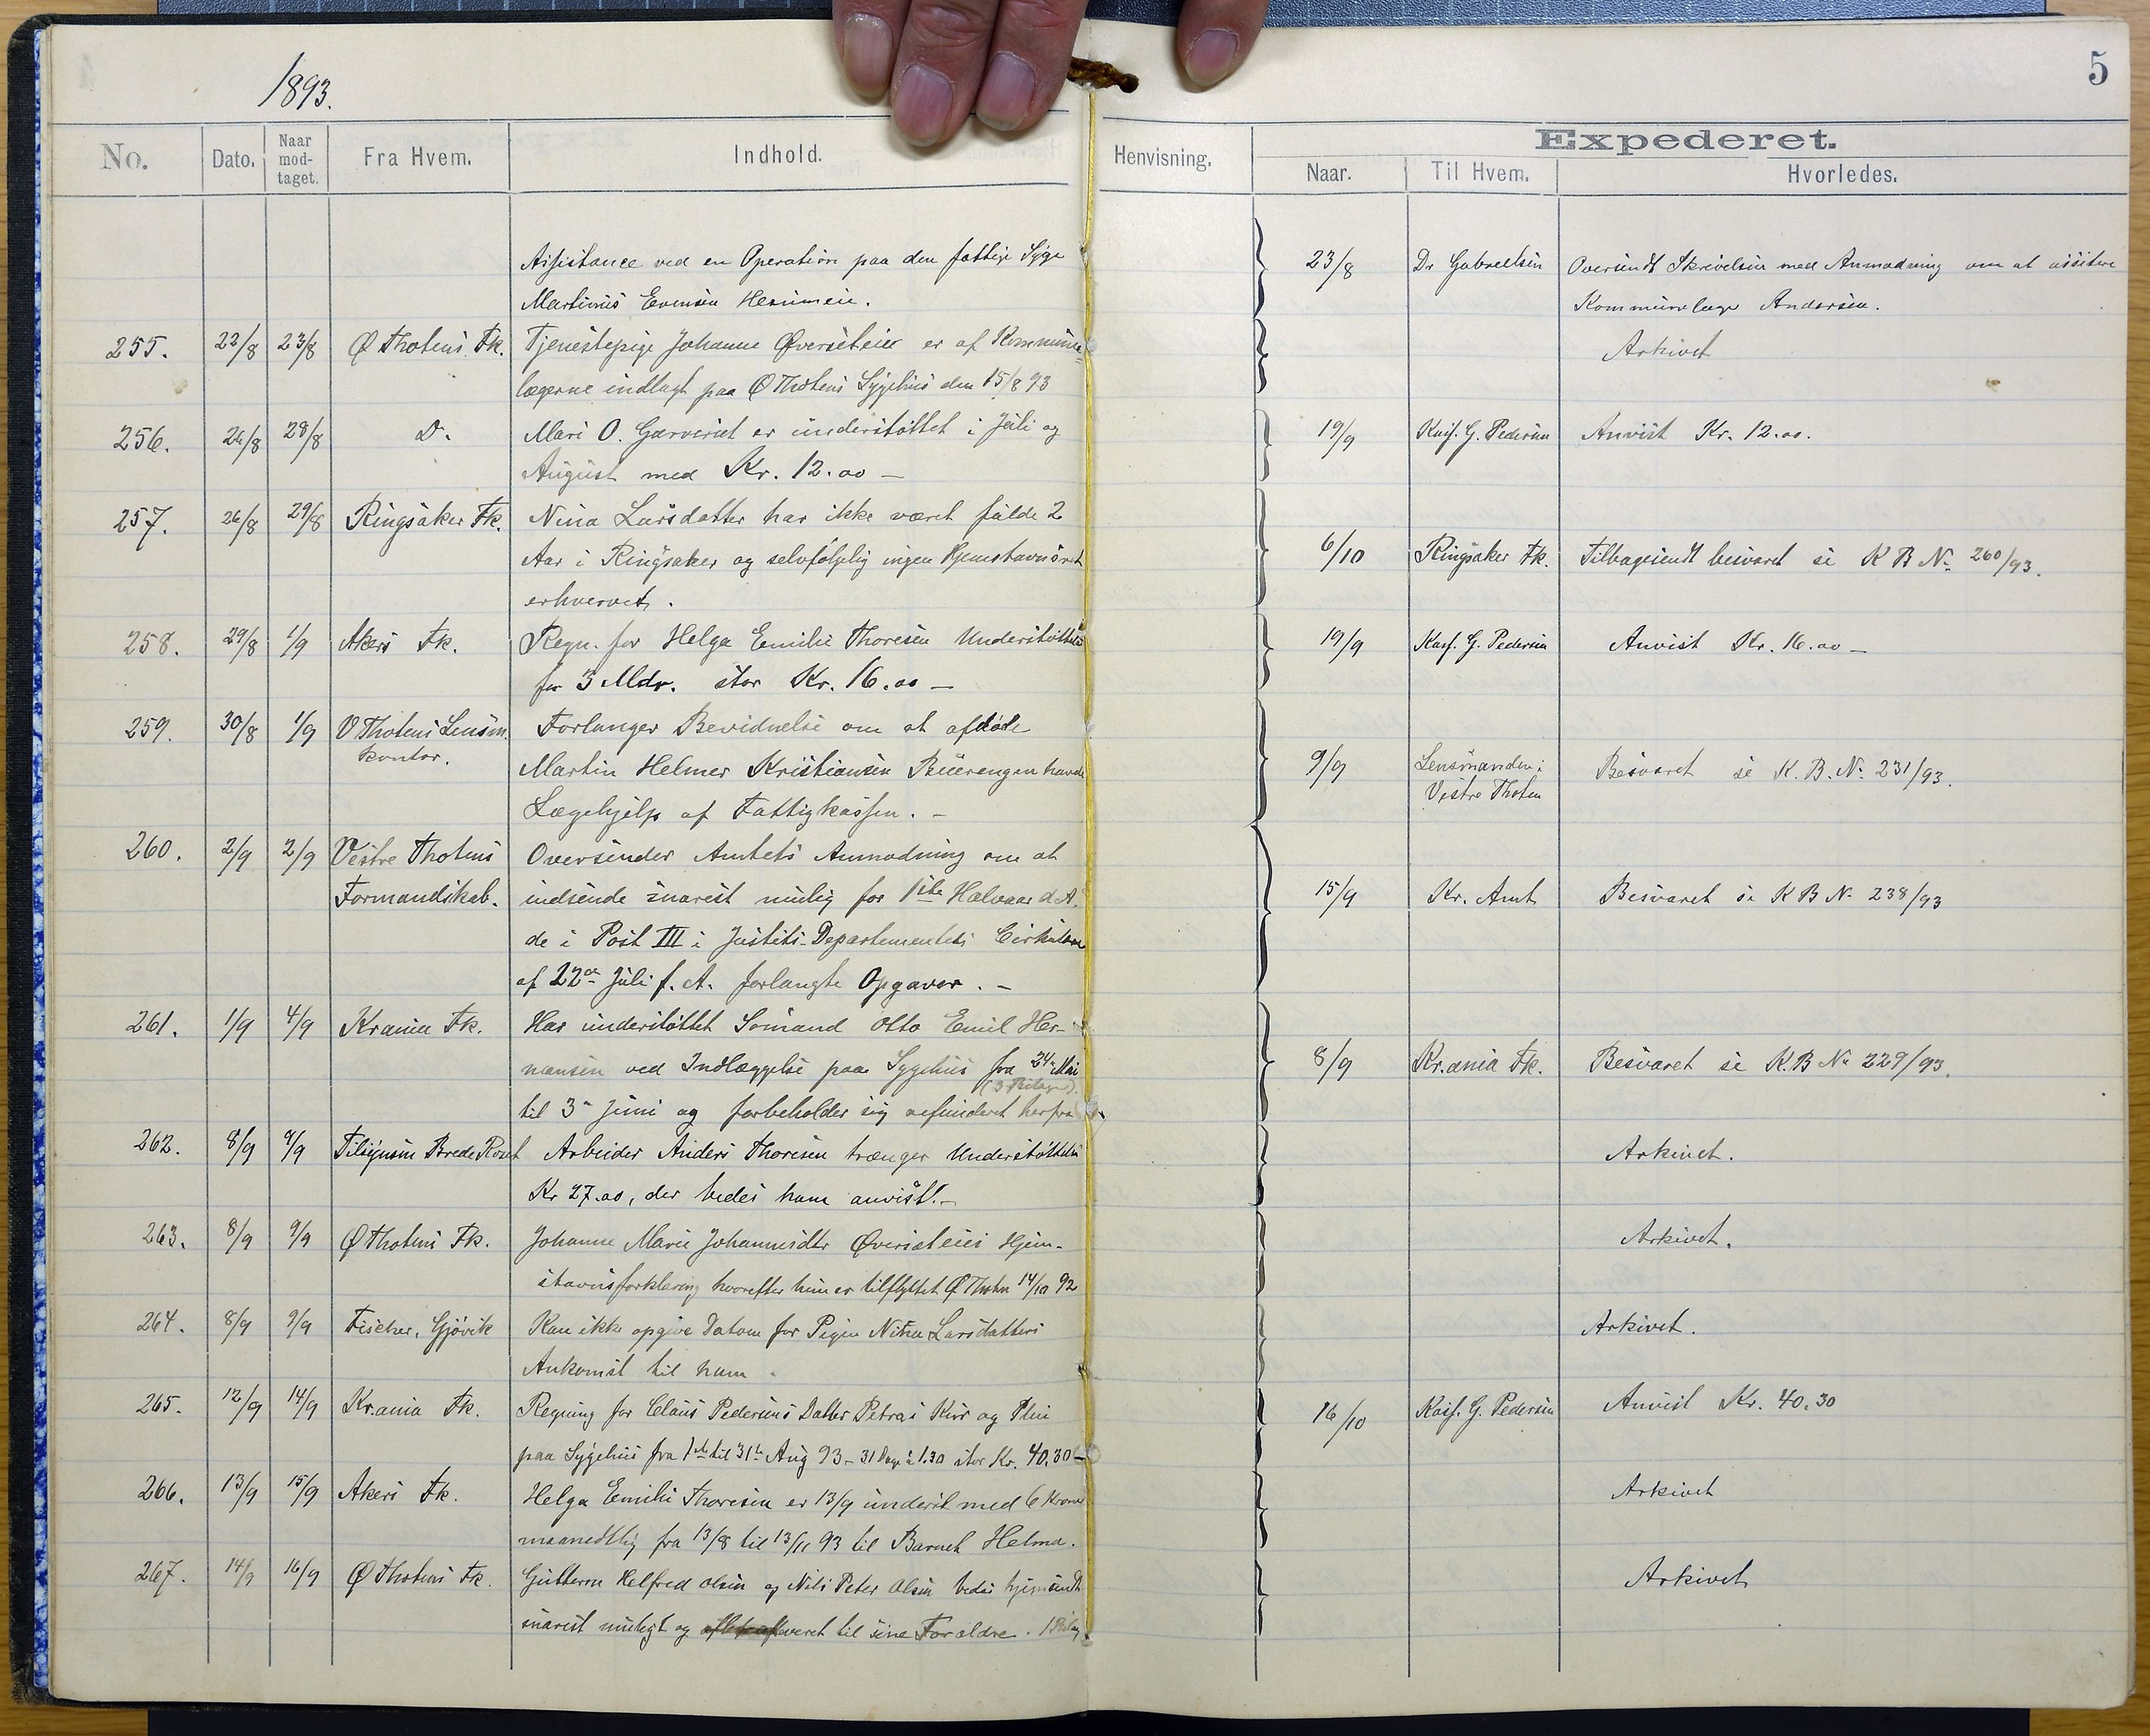 1893.
5
No. Dato. Naar mod-taget. Fra Hvem. Indhold. Henvisning. Expederet.
Naar. Til Hvem. Hvorledes.
Assistance ved en Operation paa den fattige Syge 23/8 Dr Gabrielsen Oversendt Skrivelsen med Anmodning om at assistere
Martinius Evensen Kommunelæge Andersen.
255. 22/8 23/8 Ø Thotens Fk. Tjenestepige Johanne Øversteien er af Kommune= Arkivet
lægerne indlagt paa Ø Thotens Sygehus den 15/8 93
256. 26/8 28/8 Do Mari O. Garveriet er understøttet i Juli og 19/9 Kass. G. Pedersen Anvist Kr. 12.00.
August med Kr. 12.00 —
257. 26/8 29/8 Ringsaker Fk. Nina Larsdatter har ikke været fulde 2
Aar i Ringsaker og selvfølgelig ingen Hjemstavnsret 6/10 Ringsaker Fk. Tilbagesendt besvaret se K B No 260/93.
erhvervet.
258. 29/8 1/9 Akers Fk. Regn. for Helga Emilie Thoresen Understøttelse 19/9 Kass. G. Pedersen Anvist Kr. 16.00 —
for 3 Mdr. stor Kr. 16.00 —
259. 30/8 1/9 V Thotens Lensm. Forlanger Bevidnelse om at afdøde
kontor. Martin Helmer Kristiansen havde 9/9 Lensmanden i Besvaret se K. B. No 231/93.
Vestre Thoten
Lægehjelp af Fattigkassen. —
260. 2/9 2/9 Vestre Thotens Oversender Amtets Anmodning om at
Formandskab. indsende snarest mulig for 1ste Halvaar d. A. 15/9 Kr. Amt Besvaret se K B No 238/93
de i Post III i Justits-Departementets Cirkulære
af 22de Juli f. A. forlangte Opgaver. —
261. 1/9 4/9 Krania Fk. Har understøttet Sømand Otto Emil Her-
mansen ved Indlæggelse paa Sygehus fra 24de Mai 8/9 Kr.ania Fk. Besvaret se K.B No 229/93.
(3 Bilage).
til 3de Juni og forbeholder sig refunderet herfra
262. 8/9 9/9 Tilsynsm Brede Arbeider Anders Thoresen trænger Understøttelse Arkivet.
Kr 27.00, der bedes ham anvist. —
263. 8/9 9/9 Ø Thotens Fk. Johanne Marie Johannesdtr Øversteiens Hjem- Arkivet.
stavnsforklaring hvorefter hun er tilflyttet Ø Thoten 14/10 92
264. 8/9 9/9 Fischer, Gjøvik Kan ikke opgive Datum for Pigen Nina Larsdatters Arkivet.
Ankomst til ham.
265. 12/9 14/9 Kr.ania Fk. Regning for Claus Pedersens Datter Petras Kur og Pleie 16/10 Kass. G. Pedersen Anvist Kr. 40.30
paa Sygehus fra 1ste til 31te Aug 93 — 31 Dage à 1.30 stor Kr. 40.30 —
266. 13/9 15/9 Akers Fk. Helga Emilie Thoresen er 13/9 underst. med 6 Kroner Arkivet
maanedtlig fra 13/8 til 13/11 93 til Barnet Helma.
267. 14/9 16/9 Ø Thotens Fk. Gutterne Helfred Olsen og Nils Peter Olsen bedes hjemsendt Arkivet
snarest muligt og afleveret til sine Forældre. 1 Bilag.